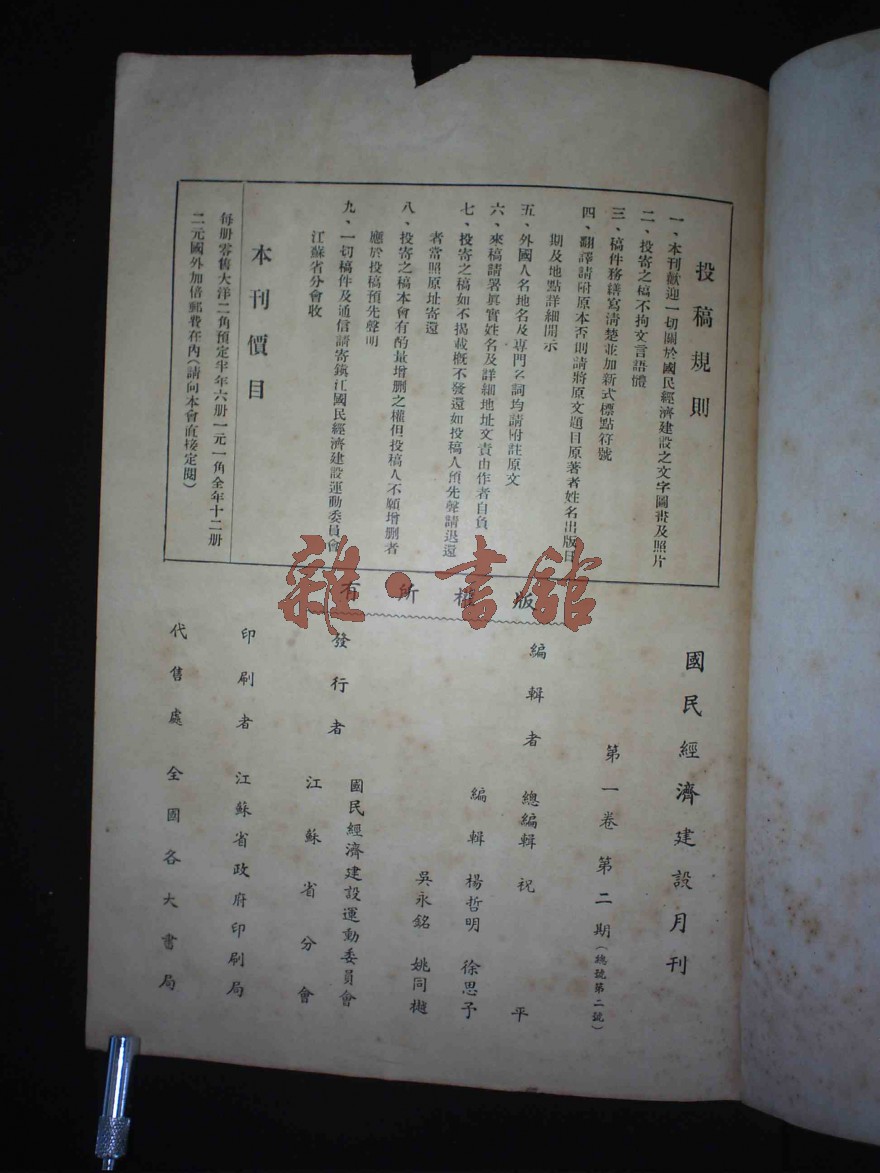 投稿規則
一、本刊歡迎一切關於國民經濟建設之文字圖書及照片
二、投寄之稿不拘文言語體
三、稿件務繕寫清楚並加新式標點符號
四、翻譯請附原本否則請將原文題目原著者姓名出版日
期及地點詳細開示
五、外國人名地名及專門名詞均請附註原文
六、來稿請署眞實姓名及詳細地址文責由作者自負
七、投寄之稿如不揭載概不發還如投稿人預先聲請退還
者當照原址寄還
八、投寄之稿本會有酌量增删之權但投稿人不願增删者
應於投稿預先聲明
九、一切稿件及通信請寄鎮江國民經濟建設運動委員會
江蘇省分會收
本刊價目
每册零售大洋二角預定半年六册一元一角全年十二册
二元國外加倍郵費在內(請向本會直接定閱)
版權所有
國民經濟建設月刊
第一卷第二期(總號第二號)
編輯者 總編輯 祝平
編輯 楊哲明 徐思予
吳永銘 姚同樾
發行者 國民經濟建設運動委員會
江蘇省分會
印刷者 江蘇省政府印刷局
代售處 全國各大書局
雜·書館